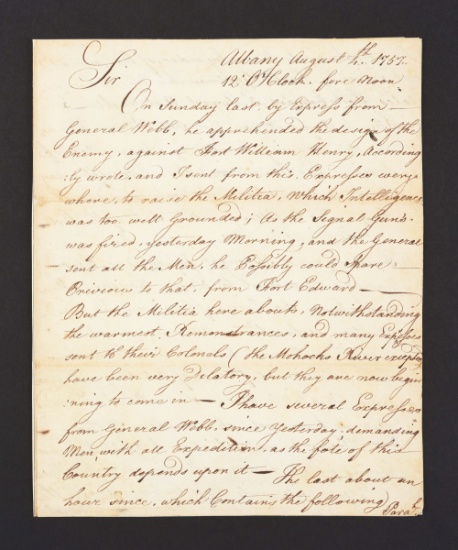 Albany August 4th. 1757.
Sir 12 O'Clock. fore Noon
On Sunday last by Express from
General Webb, he apprehended the design of the
Enemy, against Fort William Henry, According
:ly wrote, and I sent from this, Expresses every
where, to raise the Militia, which Intelligence
was too well Grounded; As the Signal Guns
was fired, yesterday Morning, and the General
sent all the Men, he Possibly could Spare
Previous to that, from Fort Edward —
But the Militia here abouts, Notwithstanding
the warmest Remonstrances, and many Expresses
sent to their Colonels (the Mohocks River excepted)
have been very dilatory, but they are now begin
:ning to come in — I have several Expresses
from General Webb, since Yesterday, demanding
Men, with all Expedition, as the fate of this
Country depends upon it — The last about an
hour since, which Contains the following